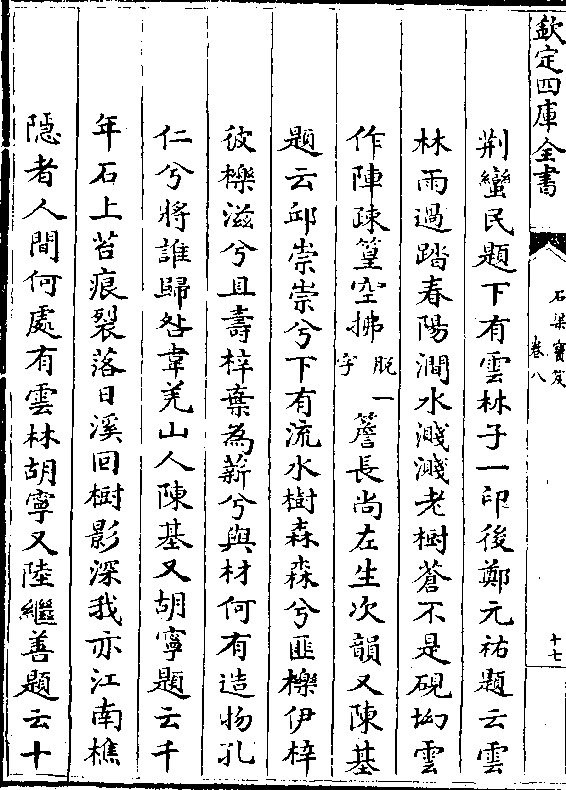 欽定四庫全書
石渠寶笈
卷八
十七
荆蠻民題下有雲林子一印後鄭元祐題云雲
林雨過踏春陽澗水濺濺老樹蒼不是硯坳雲
作陣疎篁空拂脱一字簷長尚左生次韻又陳基
題云邱崇崇兮下有流水樹森森兮匪櫟伊梓
彼櫟滋兮且壽梓棄為薪兮與材何有造物孔
仁兮將誰歸咎韋羌山人陳基又胡寧題云千
年石上苔痕裂落日溪回樹影深我亦江南樵
隱者人間何處有雲林胡寧又陸繼善題云十